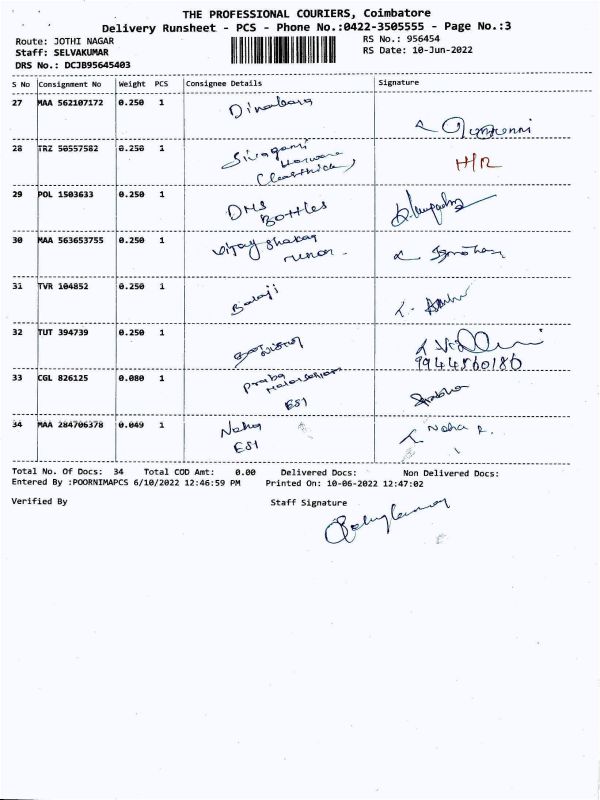 THE PROFESSIONAL COURIERS, Coimbatore
Delivery Runsheet - PCS - Phone No.:0422-3505555 - Page No.:3
Route: JOTHI NAGAR
RS No.: 956454
Staff: SELVAKUMAR
RS Date: 10-Jun-2022
DRS No.: DCJB95645403
S No Consignment No Weight PCS Consignee Details Signature
27 MAA 562107172 0.250 1
28 TRZ 50557582 0.250 1 Sivagami
H/R
29 POL 1503633 0.250 1 DMS
BOTTLES
30 MAA 563653755 0.250 1
31 TVR 104852 0.250 1 Balaji
32 TUT 394739 0.250 1
9944560186
33 CGL 826125 0.080 1 Praba
ESI
34 MAA 284706378 0.049 1 Neha Neha R.
ESI
Total No. Of Docs: 34 Total COD Amt: 0.00 Delivered Docs: Non Delivered Docs:
Entered By :POORNIMAPCS 6/10/2022 12:46:59 PM Printed On: 10-06-2022 12:47:02
Verified By Staff Signature